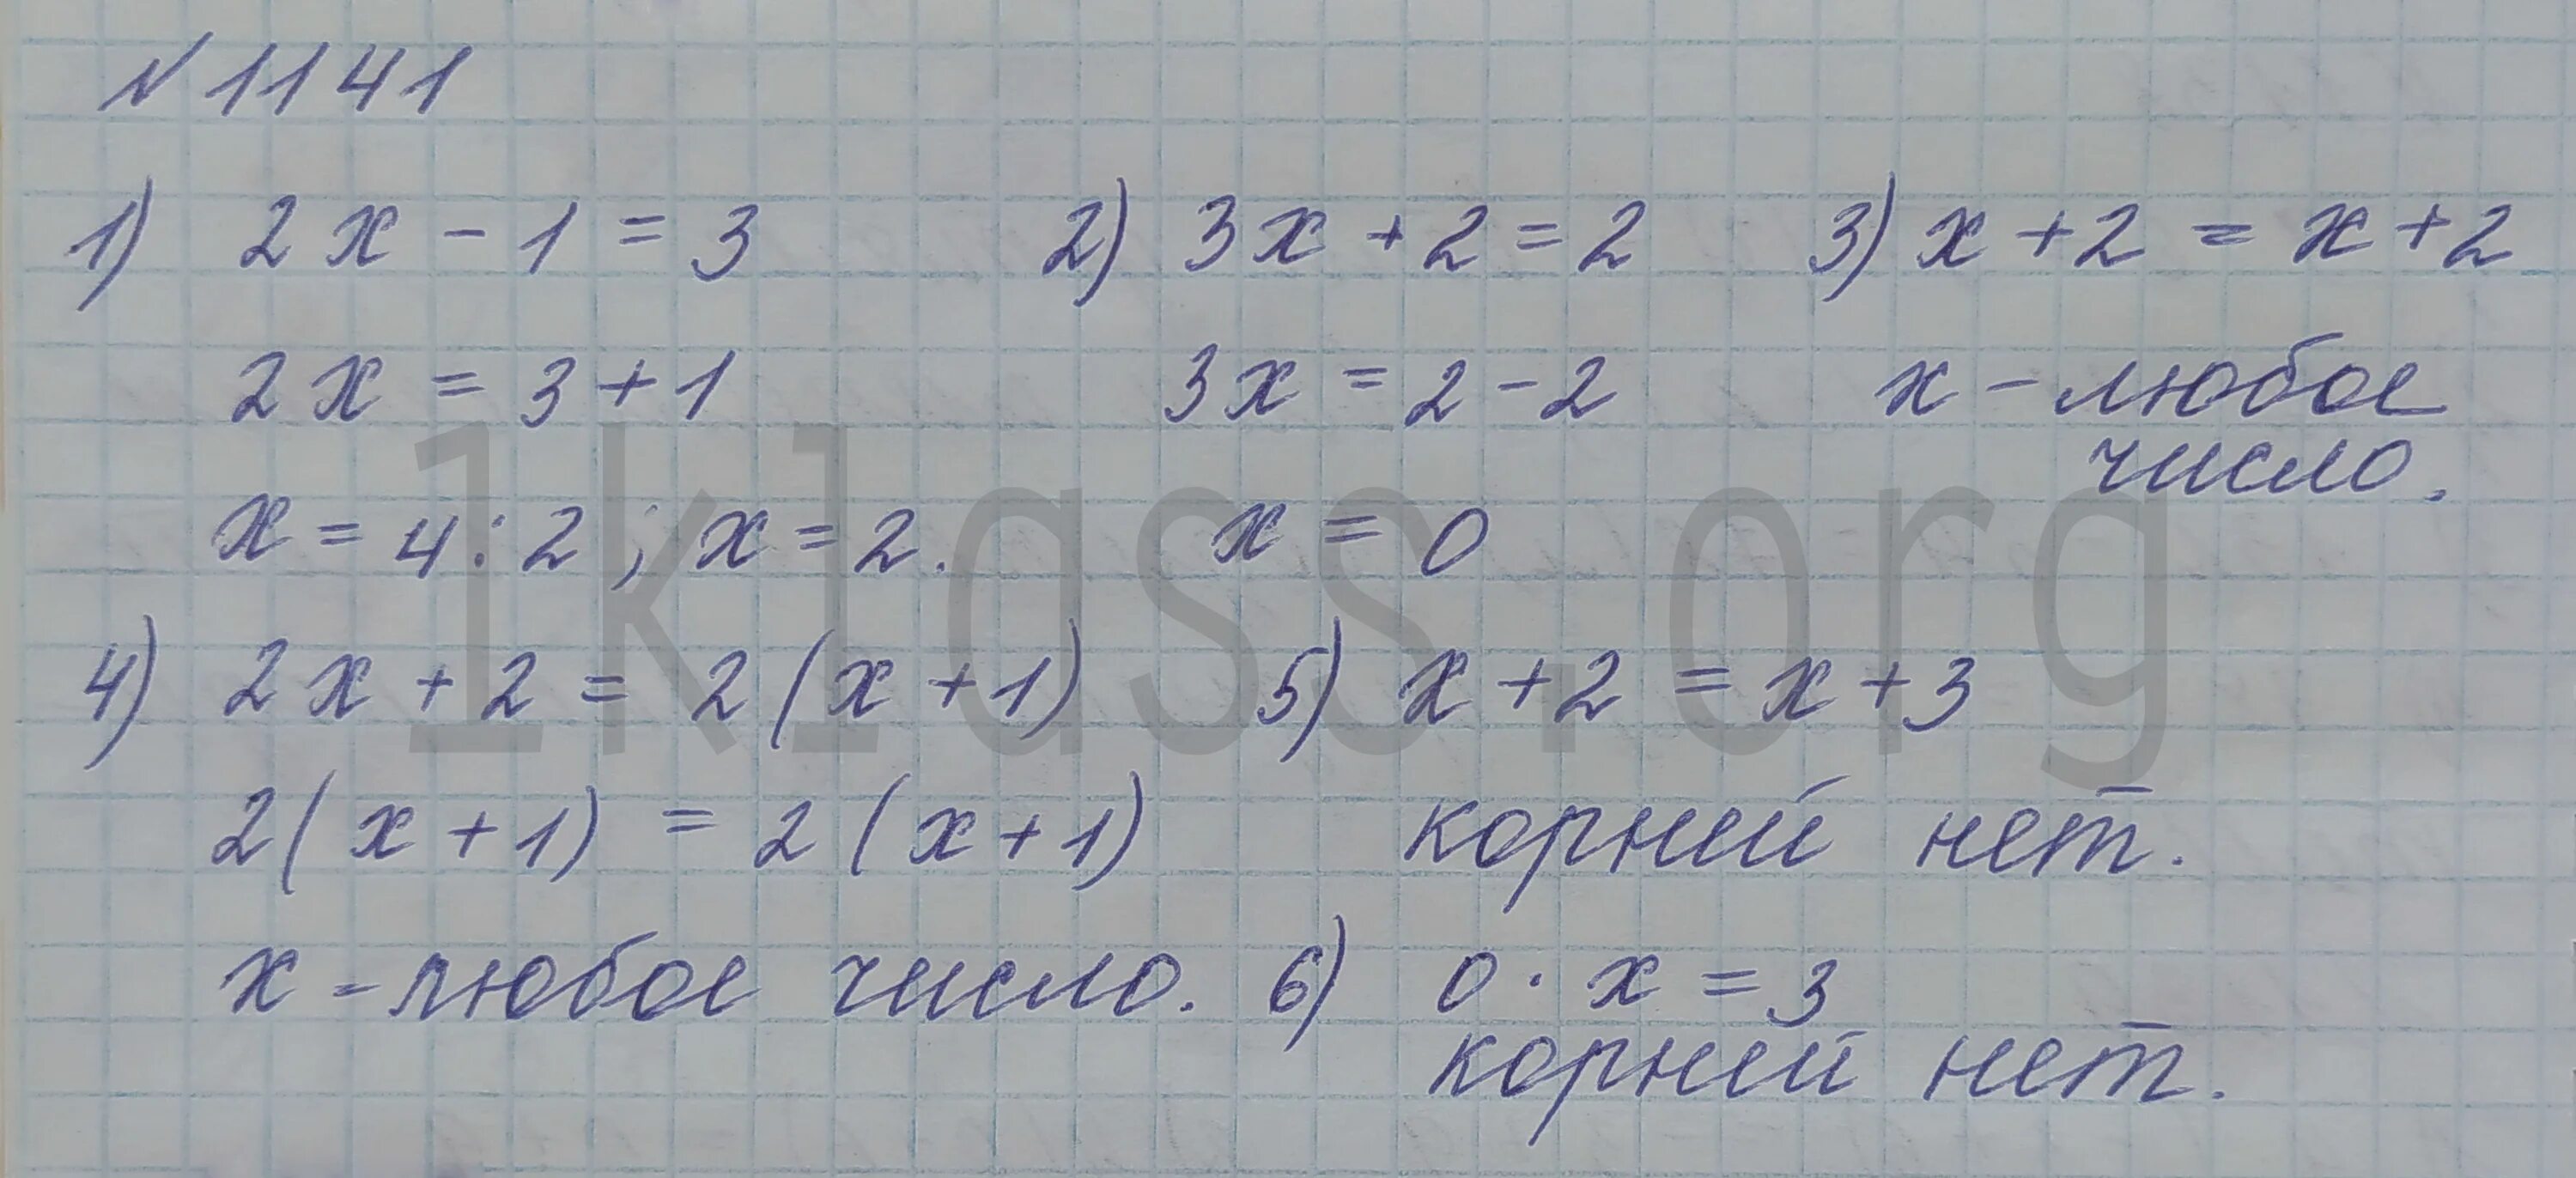 N 1141
1) 2x - 1 = 3 2) 3x + 2 = 2 3) x + 2 = x + 2
2x = 3 + 1 3x = 2 - 2 x - любое
число.
x = 4 : 2 ; x = 2. x = 0
1klass.org
4) 2x + 2 = 2 (x + 1) 5) x + 2 = x + 3
2 (x + 1) = 2 (x + 1) корней нет.
x - любое число. 6) 0 · x = 3
корней нет.